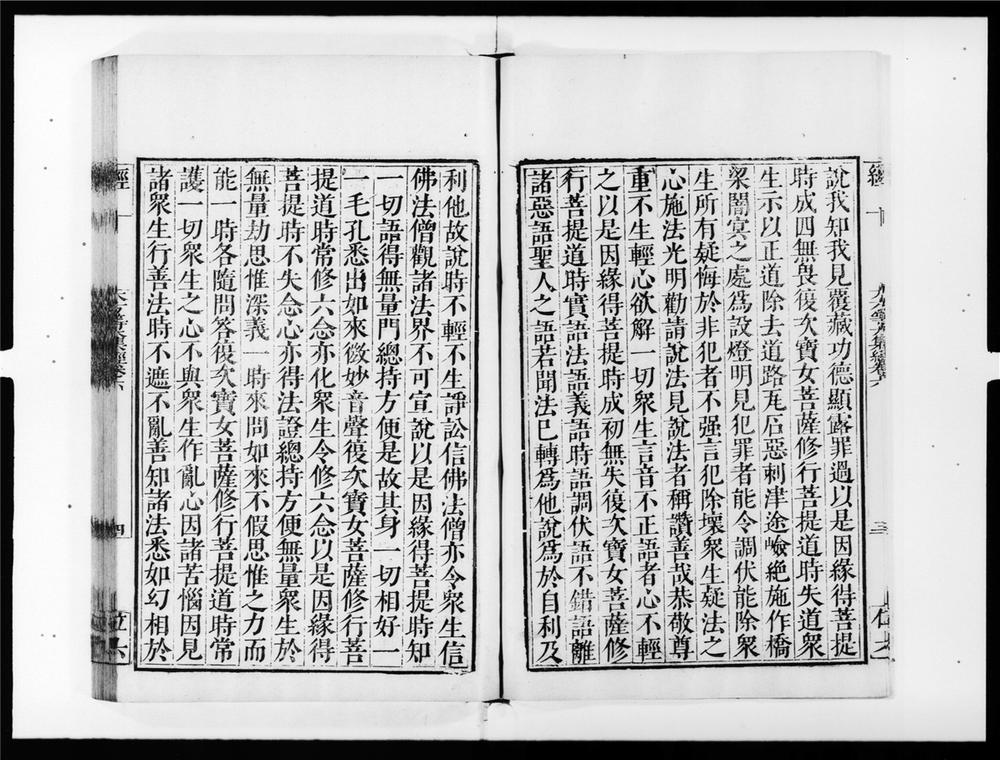 說我知我見覆藏功德顯露罪過以是因緣得菩提
時成四無畏復次寶女菩薩修行菩提道時失道眾
生示以正道除去道路瓦石惡刺津途嶮絶施作橋
梁闇冥之處爲設燈明見犯罪者能令調伏能除眾
生所有疑悔於非犯者不强言犯除壞衆生疑法之
心施法光明勸請說法見說法者稱讚善哉恭敬尊
重不生輕心欲解一切衆生言音不正語者心不輕
之以是因緣得菩提時成初無失復次寶女菩薩修
行菩提道時實語法語義語時語調伏語不錯語離
諸惡語聖人之語若聞法已轉爲他說爲於自利及
利他故說時不輕不生諍訟信佛法僧亦令衆生信
佛法僧觀諸法界不可宣說以是因緣得菩提時知
一切語得無量門總持方便是故其身一切相好一
一毛孔悉出如來微妙音聲復次寶女菩薩修行菩
提道時常修六念亦化衆生令修六念以是因緣得
菩提時不失念心亦得法證總持方便無量衆生於
無量劫思惟深義一時來問如來不假思惟之力而
能一時各隨問答復次寶女菩薩修行菩提道時常
護一切衆生之心不與衆生作亂心因諸苦惱因見
諸衆生行善法時不遮不亂善知諸法悉如幻相於